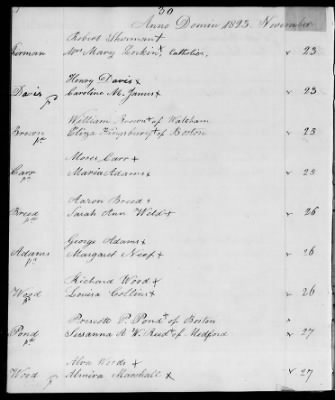 30
Anno Domini 1823. November
Robert Shorman+
Mrs Mary Larkin+ Catholic. 23
Henry Davis+
Davis Caroline M. James+ 23
William Brown+ of Waltham
Brown Eliza Kingsbury+ of Boston 23
Moses Carr+
Carr Maria Adams+ 23
Aaron Breed+
Breed Sarah Ann Weld+ 26
George Adams+
Adams Margaret 26
Richard Wood+
Wood Louisa Collier+ 26
P. Pond+ of Boston
Pond Susanna A. W. Reed+ of Medford 27
Alva Wood+
Wood Almira Marshall+ 27